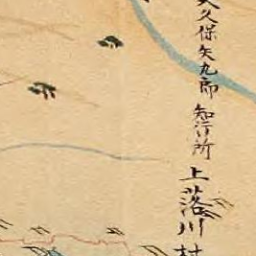 大久保矢九郎知行所上落川村